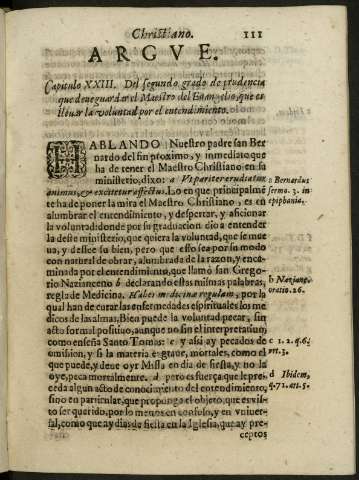 Christiano. 111
ARGVE.
Capitulo XXIII. Del segundo grado de prudencia
que deue guardar el Maestro del Euangelio, que es
lleuar la voluntad por el entendimiento.
HABLANDO Nuestro padre san Ber
nardo del fin proximo, y inmediato que
ha de tener el Maestro Christiano en su
ministerio, dixo: a Vt pariter erudiatur
animus, & excitetur affectus. Lo en que principalmẽ
te ha de poner la mira el Maestro Christiano, es en
alumbrar el entendimiento, y despertar, y aficionar
la voluntad donde por su graduacion dio a entender
la deste ministerio, que quiera la voluntad, que se mue
ua, y dessee su bien, pero que esto sea por su modo
con natural de obrar, alumbrada de la razon, y enca
minada por el entendimiento, que llamó san Grego-
rio Nazianceno b declarando estas mismas palabras,
regla de Medicina. Habet medicina regulam, por la
qual han de curar las enfermedades espirituales los me
dicos de las almas. Bien puede la voluntad pecar, sin
acto formal positiuo, aunque no sin el interpretatiuo,
como enseña Santo Tomas: c y assi ay pecados de
omision, y si la materia es graue, mortales, como el
que puede, y deue oyr Missa en dia de fiesta, y no la
oye, peca mortalmente. d pero es fuerça, que le pre-
ceda algun acto de conocimiento del entendimiento,
sino en particular, que proponga el objeto, que es vis-
to ser querido, por lo menos en confuso, y en vniuer-
sal, como que ay dias de fiesta en la Iglesia, que ay pre-
ceptos
a Bernardus
serma. 3. in
epiphania.
b Naziane.
oratio. 26.
c 1. 2. q. 6.
art. 3.
d Ibidem,
q. 71. art. 5.